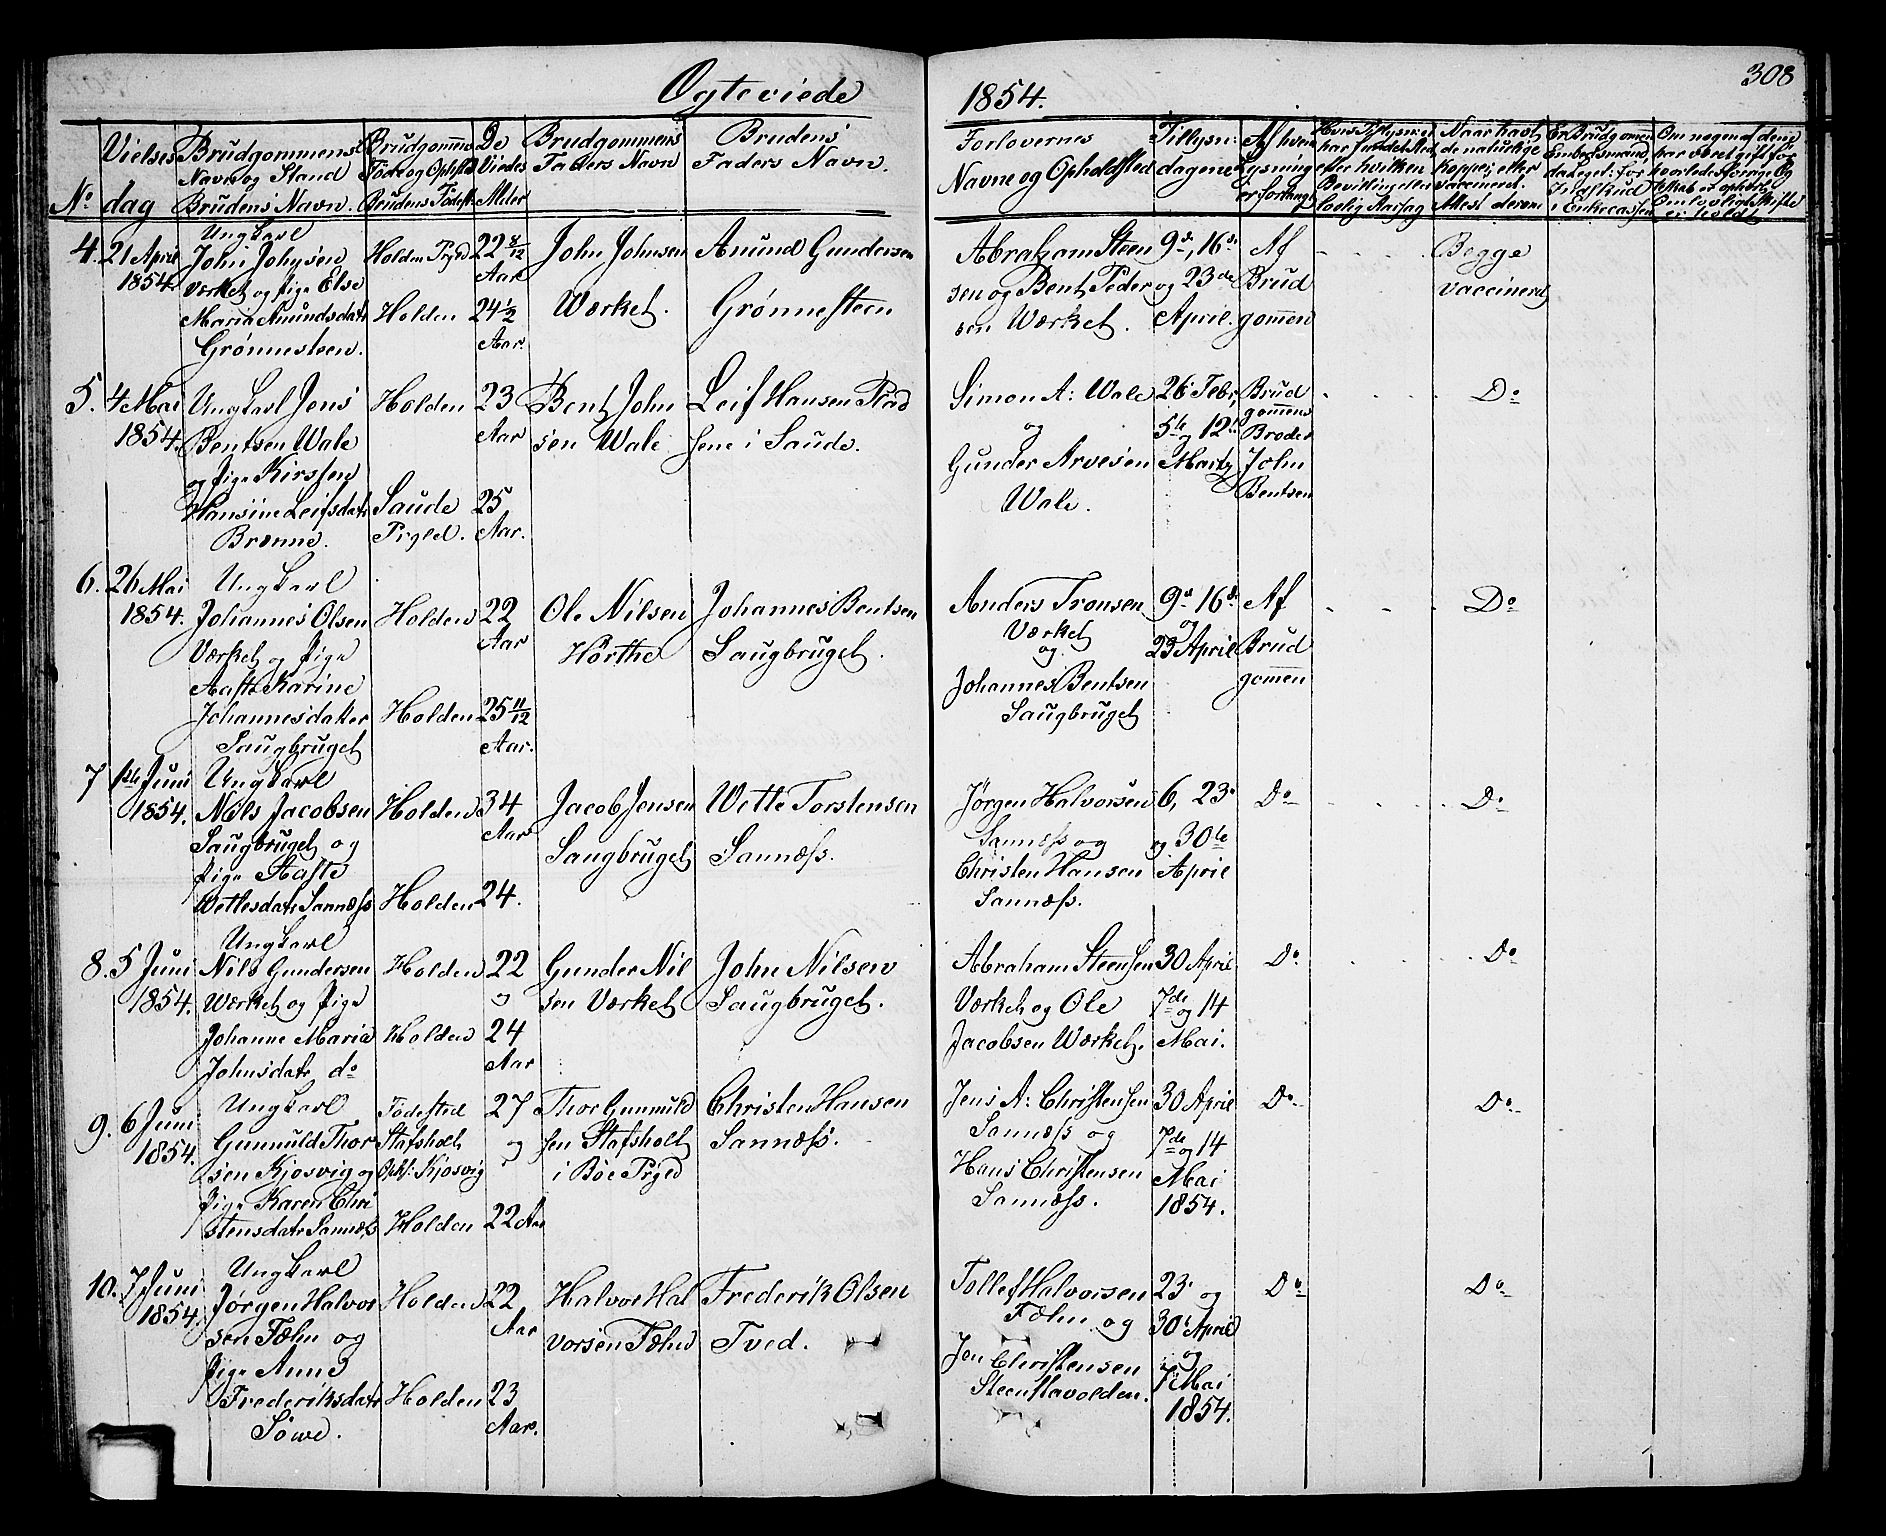 Ogteviede
1854.
308
No.
Vielses
dag
Brudgommens
Navn og Stand
Brudens Navn.
Brudgommens
Føde og Ophsted
Brudens Fødest.
De
Viedes
Alder
Brudgommens
Faders Navn
Brudens
Faders Navn.
Forlovernes
Navne og Opholdsted
Tillysn:
dagene
Af hvem
Lysning
er forlangt
Naar havt
de naturlige
kopper eller
vaccineret.
Attest derom
Er Brudgomen
Embedsmand,
Om nogen af dem
har været gift før
4. 21 April
1854.
Ungkarl
John Johnsen
Værket og Pige Else
Maria Anundsdatr
Grønnesteen.
Holden Prgld
Holden
22 8/12
Aar
24 1/2
Aar.
John Johnsen
Wærket.
Anund Gundersen
Grønnesteen
Abraham Steen
sen og Bent Peder
sen Wærket.
9de, 16de
og 23de
April.
Af
Brud
gomen
Begge
vaccinered
5. 4 Mai
1854.
Ungkarl Jens
Bentsen Wale
og Pige Kirsten
Hansine Leifsdatr
Brenne.
Holden
Saude
Prgld.
23
Aar
25
Aar.
Bent John
sen Wale
Leif Hansen
i Saude.
Simon A: Wale
og
Gunder Arvesen
Wale.
26 Febr,
5te og 12te
Marts
Brud
gomens
Broder
John
Bentsen
Do
6. 26 Mai
1854.
Ungkarl
Johannes Olsen
Værket og Pige
Aaste Karine
Johannesdatter
Saugbruget
Holden
Holden
22
Aar
25 11/12
Aar.
Ole Nilsen
Hørthe
Johannes Bentsen
Saugbruget.
Anders Tronsen
Værket
og
Johannes Bentsen
Saugbruget
9de 16de
og
23 April
Af
Brud
gomen
Do
7 1ste Juni
1854.
Ungkarl
Nils Jacobsen
Saugbruget og
Pige Aaste
Wetlesdatr Sannæss
Holden
Holden
34
Aar
24.
Jacob Jensen
Saugbruget
Wetle Torstensen
Sannæss.
Jørgen Halvorsen
Sannæss og
Christen Hansen
Sannæss.
6, 23de
og 30te
April
Do
Do
8. 5 Juni
1854.
Ungkarl
Nils Gundersen
Wærket og Pige
Johanne Maria
Johnsdatr do
Holden
Holden
22
og
24
Aar
Gunder Nil
sen Værket
John Nilsen
Saugbruget.
Abraham Steensen
Værket og Ole
Jacobsen Wærket.
30 April
7de og 14
Mai.
Do
Do
9. 6 Juni
1854.
Ungkarl
Gunnuld Thor
sen Kjosvig og
Pige Karen Chri
stensdatr Sannæss
Fødested
Stafsholt
Ophl: Kjosvig
Holden
27
og
22 Aar
Thor Gunnuld
sen Stafsholt
i Bøe Prgld
Christen Hansen
Sannæss.
Jens A: Christensen
Sannæss og
Hans Christensen
Sannæss.
30 April
7de og 14
Mai
1854.
Do
Do
10. 7 Juni
1854.
Ungkarl
Jørgen Halvor
sen Fæhn og
Pige Anne
Frederiksdatr
Søwe.
Holden
Holden
22
Aar
23
Aar.
Halvor Hal
vorsen Fæhn
Frederik Olsen
Tved.
Tollef Halvorsen
Fæhn og
Jen Christensen
Steenstavolden.
23de og
30te April
og
7de Mai
1854.
Do
Do